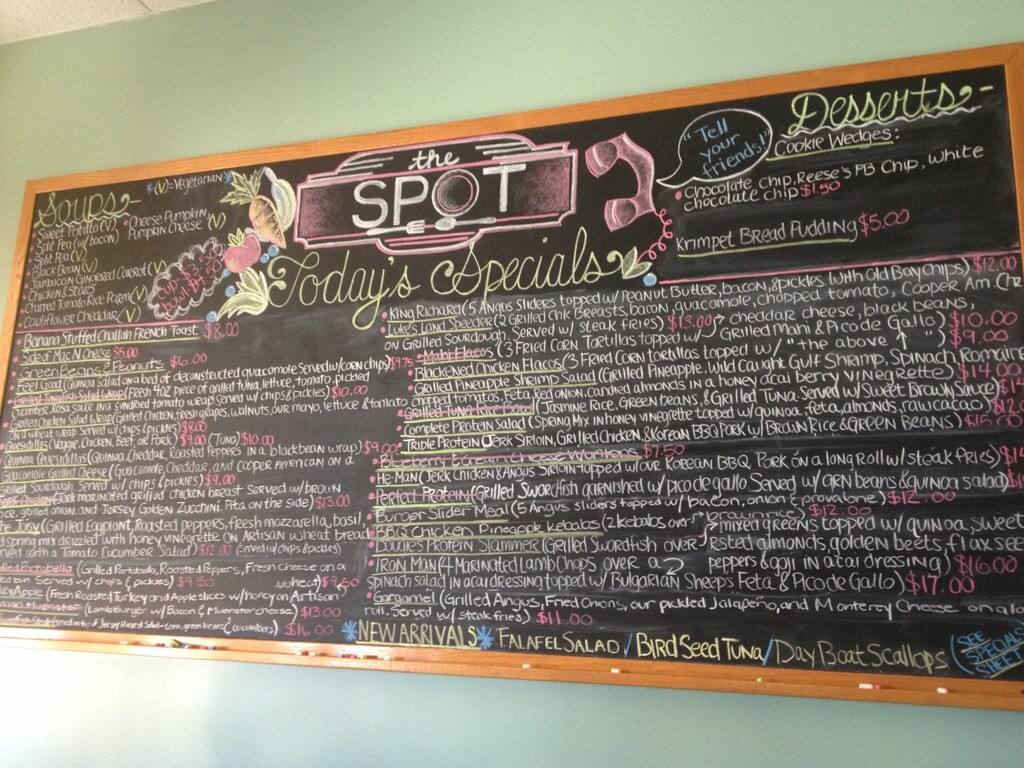 Soups
*(V)=Vegetarian*
Sweet Potato (V)
Split Pea (w/ bacon)
Split Pea (V)
Black Bean (V)
Jamaican Gingered Carrot (V)
Chicken & Stars
Charred Tomato Rice Parm (V)
Cauliflower Cheddar (V)
Cheese Pumpkin
Pumpkin Cheese (V)
the
SPOT
Today's Specials
"Tell
your
friends!"
Desserts
Cookie Wedges:
Chocolate Chip, Reese's PB Chip, White
chocolate chip $1.50
Krimpet Bread Pudding $5.00
Banana Stuffed Challah French Toast $8.00
Side of Mac N Cheese $5.00
Green Beans & Peanuts $6.00
Feel Grad (Quinoa Salad on a bed of deconstructed guacamole Served w/ corn chips) $9.75
(Fresh 7oz piece of grilled tuna, lettuce, tomato, pickled
cucumber, in a sundried tomato wrap Served w/ chips & pickles) $10.00
Grilled Chicken Salad Wrap (Grilled Chicken, fresh grapes, walnuts, our mayo, lettuce & tomato
on a wheat wrap Served w/ chips & pickles) $8.00
Quesidillas (Veggie, Chicken, Beef, or Pork) $9.00 (Tuna) $10.00
Quinoa Quesidillas (Quinoa, Cheddar, Roasted Peppers in a blackbean wrap) $9.00
Grilled Cheese (Guacamole, Cheddar, and Cooper American on a
Grilled Sourdough. Served w/ chips & pickles) $9.00
(Jerk marinated grilled chicken breast served w/ brown
rice, grilled onion, and Jersey Golden Zucchini. Pita on the side) $13.00
(Grilled Eggplant, Roasted peppers, fresh mozzarella, basil,
spring mix drizzled with honey vinegrette on Artisan wheat bread
Served with a Tomato Cucumber Salad) $12.00 (served w/ chips & pickles)
(Grilled Portabella, Roasted Peppers, Fresh Cheese on a
Served w/ chips & pickles) $9.50
Apple (Fresh Roasted Turkey and Apple slices w/ honey on Artisan wheat) $9.50
(Lamb burger w/ Bacon & Muenster cheese) $13.00
$16.00
King Richard (5 Angus Sliders topped w/ Peanut Butter, bacon, & pickles With Old Bay chips) $12.00
Luke's Land Speeder (2 Grilled Chk Breasts, bacon, guacamole, chopped tomato, Cooper Am. Ch
on Grilled Sourdough. Served w/ steak fries) $13.00
Blackened Chicken Flacos (3 Fried Corn Tortillas topped w/ cheddar cheese, black beans,
Grilled Mahi & Pico de Gallo) $10.00
(3 Fried Corn tortillas topped w/ "the above ↑ ") $9.00
Grilled Pineapple Shrimp Salad (Grilled Pineapple, Wild Caught Gulf Shrimp, Spinach Romaine
chopped tomatos, Feta, red onion, candied almonds in a honey acai berry vinegrette) $14.00
Grilled Tuna Rice Bowl (Jasmine Rice, Green beans, & Grilled Tuna. Served w/ Sweet Brown Sauce) $14
Complete Protein Salad (Spring Mix in honey vinegrette topped w/ quinoa, feta, almonds, raw cacao)
Triple Protein (Jerk Sirloin, Grilled Chicken, & Korean BBQ Pork w/ Brown Rice & Green Beans) $15.00
$7.50
He-Man (Jerk Chicken & Angus Sirloin topped w/ our Korean BBQ Pork on a long Roll w/ steak fries) $14
Perfect Protein (Grilled Swordfish garnished w/ pico de gallo Served w/ grn beans & quinoa salad)
Burger Slider Meal (5 Angus sliders topped w/ bacon, onion & provalone) $12.00
BBQ Chicken Pineapple Kebabs (2 kebabs over $12.00
Doodles Protein Slammer (Grilled Swordfish over mixed greens topped w/ quinoa, sweet
roasted almonds, golden beets, flax see
Iron Man (4 Marinated Lamb Chops over a peppers & goji in acai dressing) $16.00
spinach salad in acai dressing topped w/ Bulgarian Sheeps Feta & Pico de Gallo) $17.00
Gargamel (Grilled Angus, Fried Onions, our pickled Jalapeño, and Monterey Cheese on a lo
roll. Served w/ steak fries) $11.00
*NEW ARRIVALS* Falafel Salad / Bird Seed Tuna / Day Boat Scallops (See
Specials
Sheet